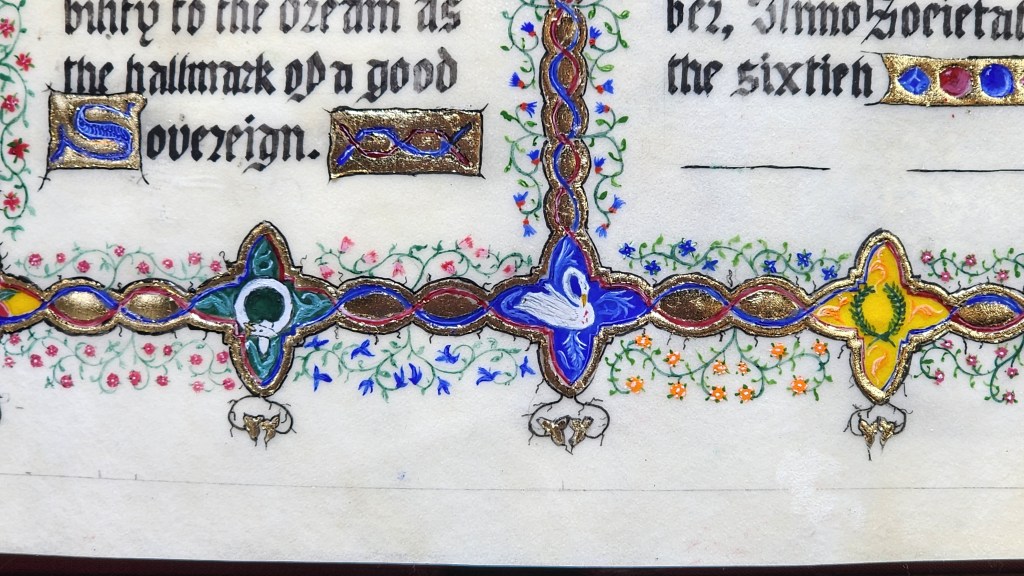 bility to the dream as
the hallmark of a good
Sovereign.
ber, Anno Societat
the sixtieh